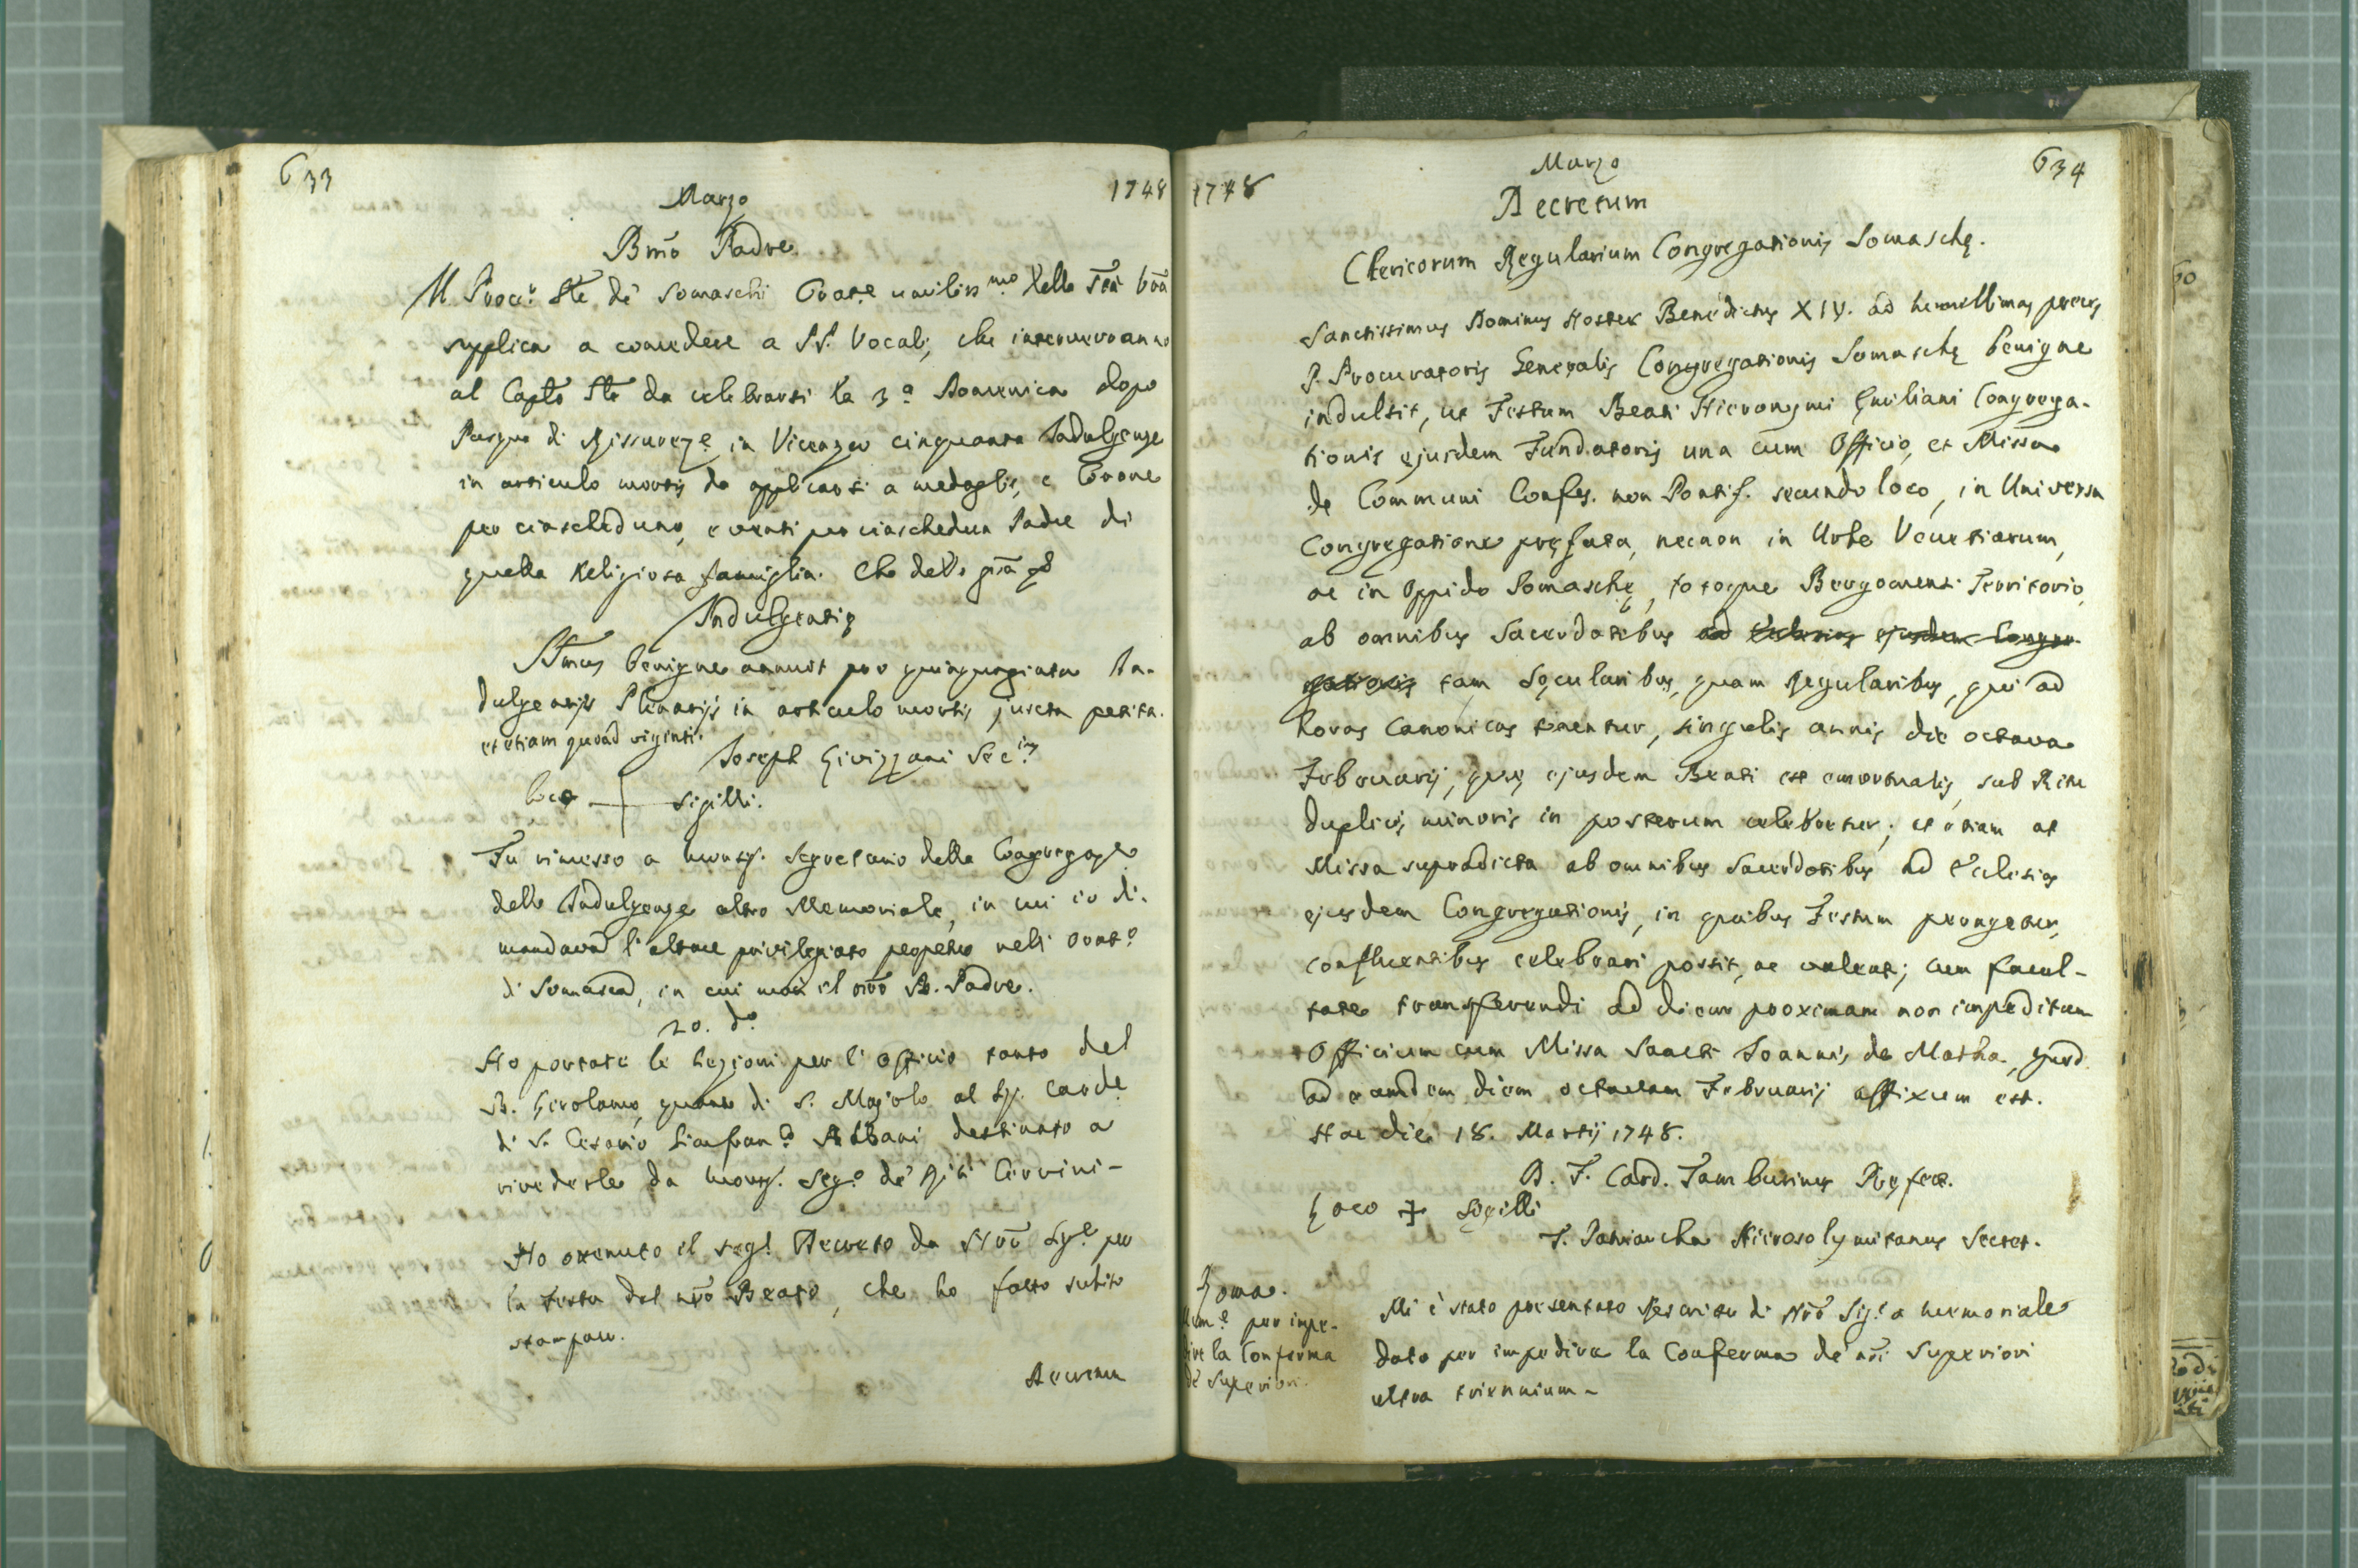 633
Marzo
1748
Bm̃o Padre
Il Procur. Gñle de' Somaschi Orat.e umiliss.mo della Stà Vrã
supplica a concedere a PP. Vocali, che interverranno
al Capt̃o Gñle da celebrarsi la 3.a Domenica dopo
Pasqua di Risurez.e in Vicenza cinquanta Indulgenze
in articulo mortis da applicarsi a medaglie, e Corone
per ciascheduno, e venti per ciaschedun Padre di
quella Religiosa famiglia. Che della grã
Indulgentię
SSmus benigne annuit pro quinquaginta In-
dulgentijs Plenarijs in articulo mortis juxta petita.
et etiam quoad viginti.
Joseph Livizzani Sec.ius
Loco + sigilli.
Fu rimesso a Monsg. Segretario della Congregaz.e
delle Indulgenze altro Memoriale, in cui io di-
mandava l'altare privilegiato perpetuo nell' Orat.o
di Somasca, in cui morì il nrõ B. Padre.
20. d.o
Ho portate le Lezioni per l'Officio tanto del
B. Girolamo, quanto di S. Majolo al Sg. Card.e
di S. Cesario Gianfran.co Albani destinato a
rivederle da Monsg. Seg.o de' Riti Cervini-
Ho ottenuto il seg.e Decreto da Nrõ Sig.e per
la Festa del nrõ Beato, che ho fatto subito
stampare.
Decretum
1748
Marzo
634
Decretum
Clericorum Regularium Congregationis Somaschę.
Sanctissimus Dominus Noster Benedictus XIV. ad humillimas preces
P. Procuratoris Generalis Congregationis Somaschę benigne
indulsit, ut Festum Beati Hieronymi Ęmiliani Congrega-
tionis ejusdem Fundatoris una cum Officio, et Missa
de Communi Confes. non Pontif. secundo loco, in Universa
Congregatione pręfata, necnon in Urbe Venetiarum,
ac in Oppido Somaschę, totoque Bergomensi Territorio,
ab omnibus Sacerdotibus ad Ecclesias ejusdem Congre-
gationis tam Sęcularibus, quam Regularibus, qui ad
horas Canonicas tenentur, singulis annis die octava
Februarij, quę ejusdem Beati est emortualis, sub Ritu
duplici minoris in posterum celebretur; et etiam ut
Missa supradicta ab omnibus Sacerdotibus ad Ecclesias
ejusdem Congregationis, in quibus Festum peragetur,
confluentibus celebrari possit, ac valeat; cum facul-
tate transferendi ad diem proximam non impeditam
Officium cum Missa Sancti Joannis de Matha, quod
ad eamdem diem octavam Februarij affixum est.
Hac die 18. Martij 1748.
D. F. Card. Tamburinus Pręfect.
Loco + Sigilli
T. Patriarcha Hierosolymitanus Secret.
Roma.
Mem.e per impe-
dire la Conferma
de' Superiori.
Mi è stato presentato Rescritto di Nrõ Sig.e a memoriale
dato per impedire la Conferma de' nrĩ Superiori
ultra triennium-